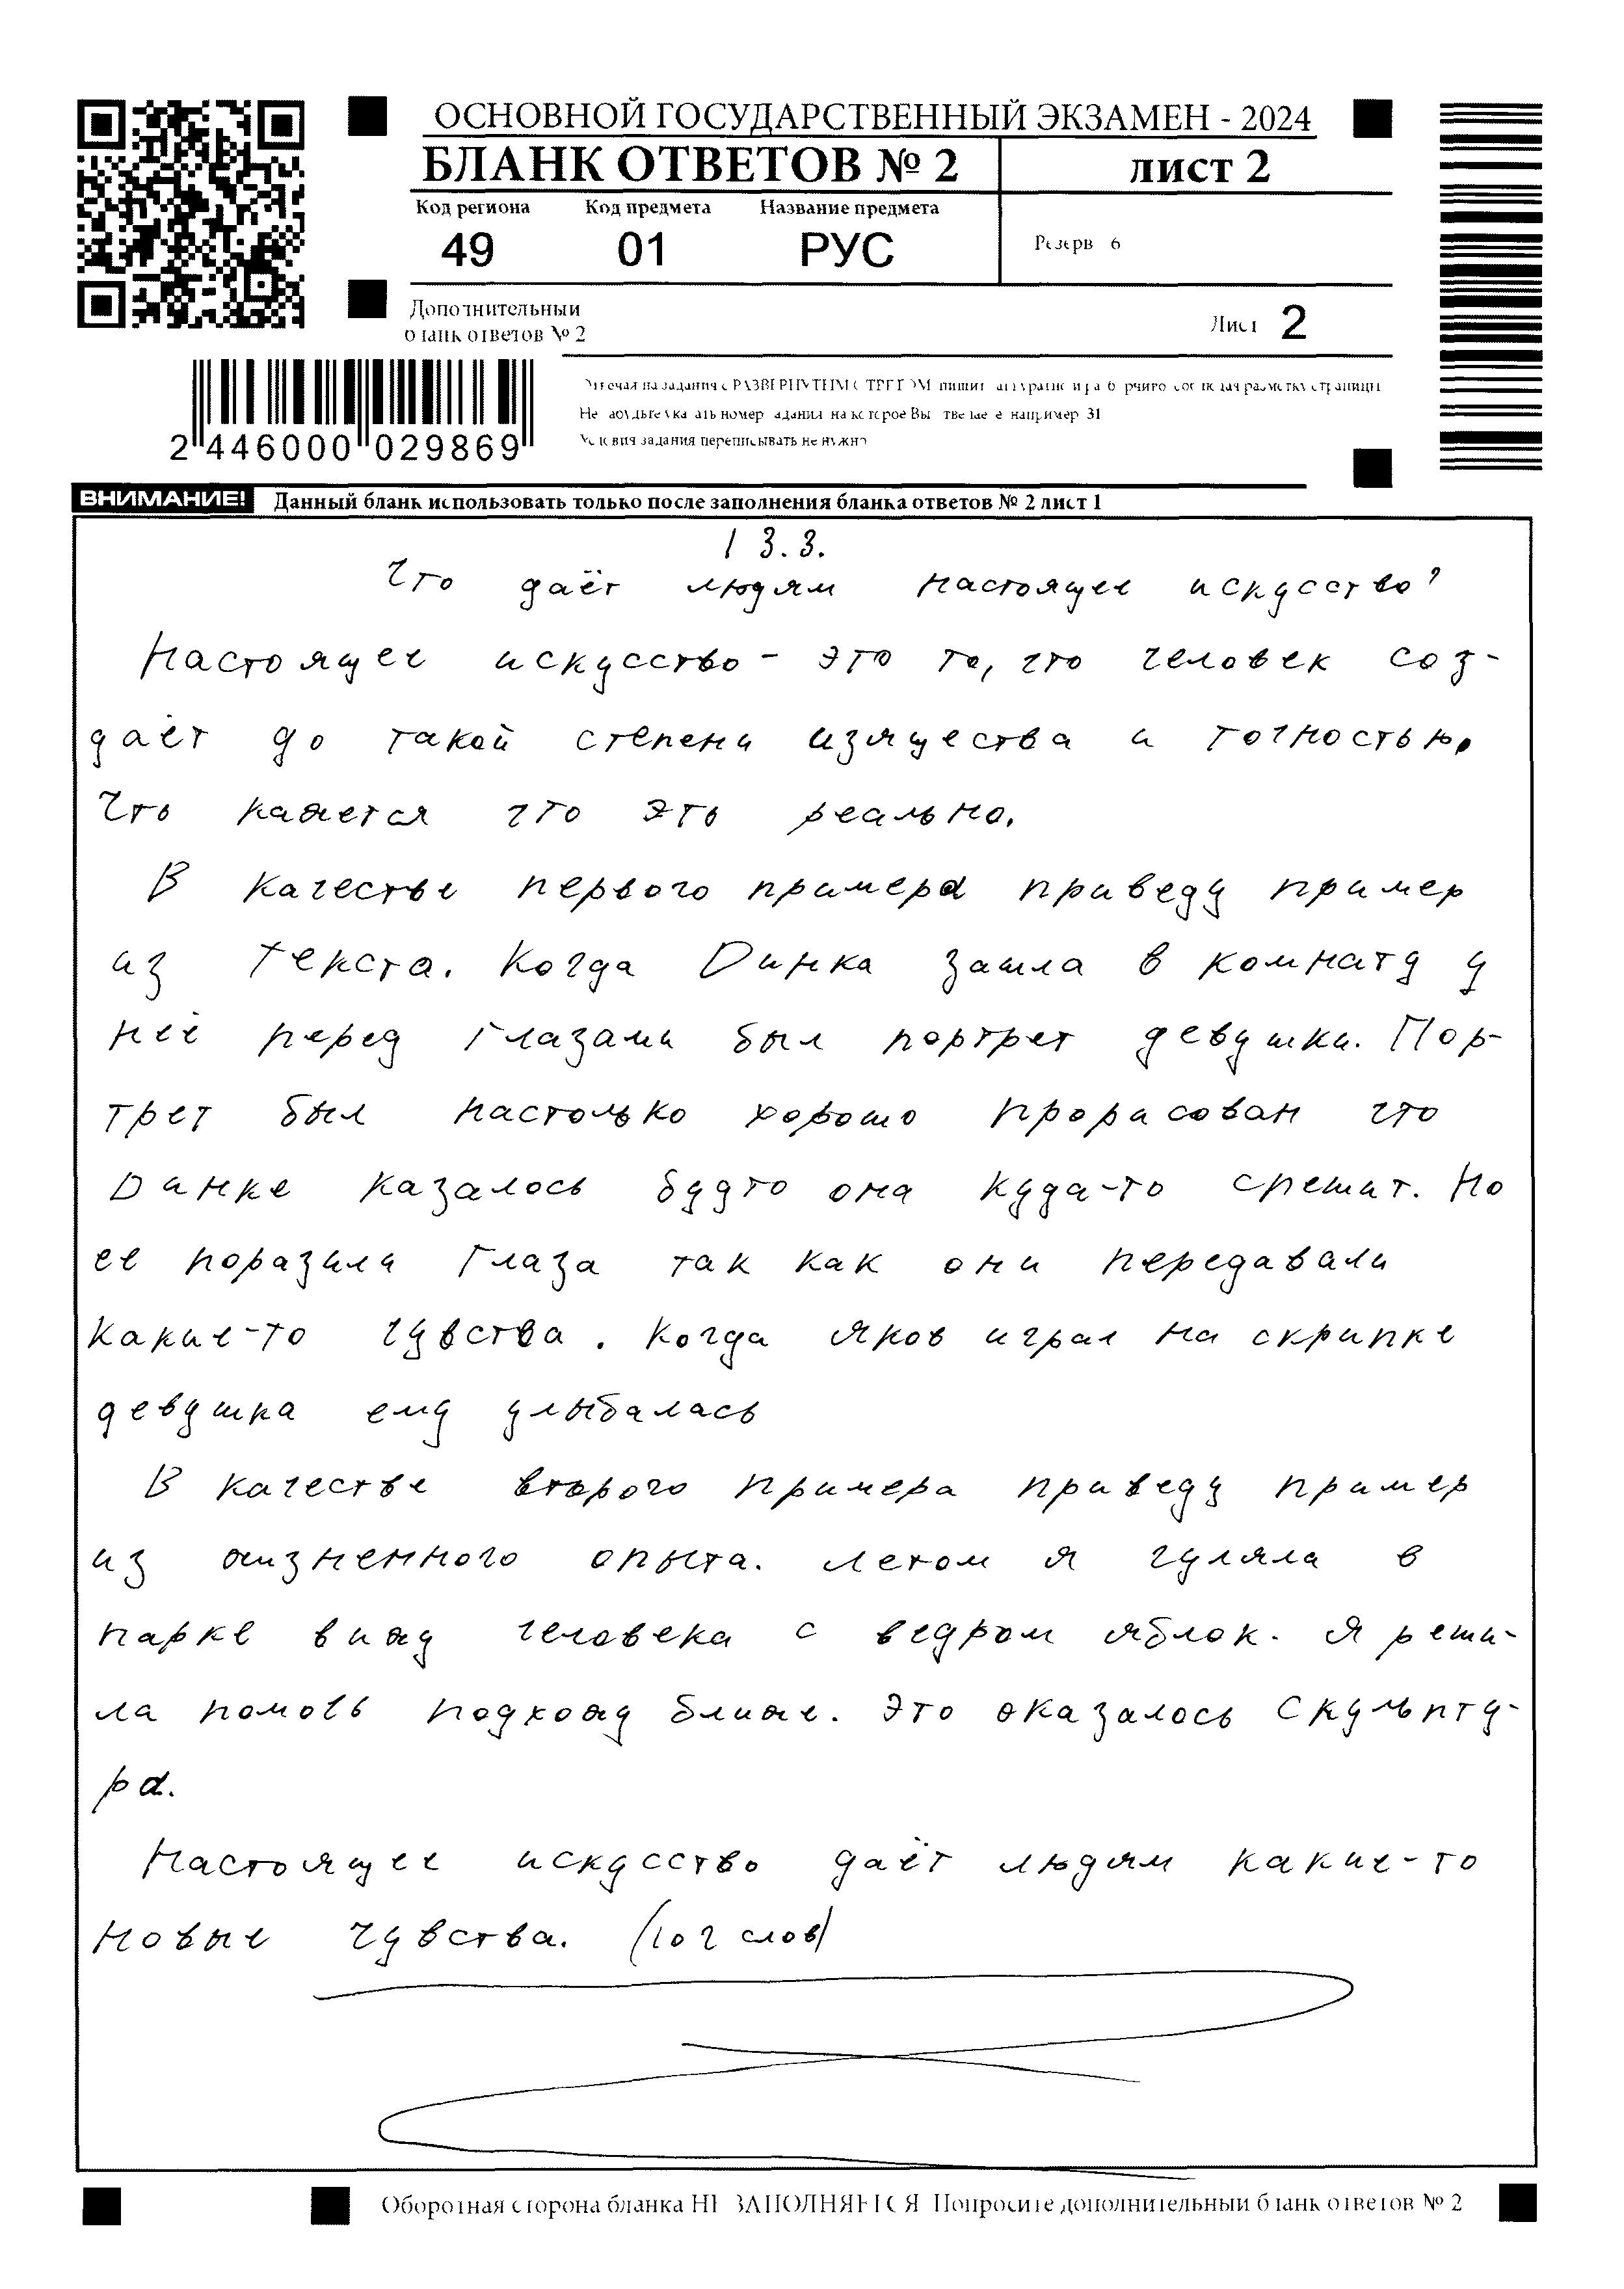 ОСНОВНОЙ ГОСУДАРСТВЕННЫЙ ЭКЗАМЕН - 2024
БЛАНК ОТВЕТОВ № 2 лист 2
Код региона Код предмета Название предмета
49 01 РУС Резерв 6
Дополнительный
бланк ответов № 2
Лист 2
2 446000 029869
Не номер задания на которое Вы например 31
Условия задания переписывать не нужно
ВНИМАНИЕ! Данный бланк использовать только после заполнения бланка ответов № 2 лист 1
13.3.
Что даёт людям настоящее искусство?
Настоящее искусство - это то, что человек соз-
даёт до такой степени изящества и точностью,
что кажется что это реально.
В качестве первого примера приведу пример
из текста. Когда Динка зашла в комнату у
неё перед глазами был портрет девушки. Пор-
трет был настолько хорошо прорисован что
Динке казалось будто она куда-то спешит. Но
её поразили глаза так как они передавали
какие-то чувства. Когда Яков играл на скрипке
девушка ему улыбалась
В качестве второго примера приведу пример
из жизненного опыта. Летом я гуляла в
парке вижу человека с ведром яблок. Я реши-
ла помочь подхожу ближе. Это оказалось скульпту-
ра.
Настоящее искусство даёт людям какие-то
новые чувства. (102 слов)
Оборотная сторона бланка НЕ ЗАПОЛНЯЕТСЯ Попросите дополнительный бланк ответов № 2